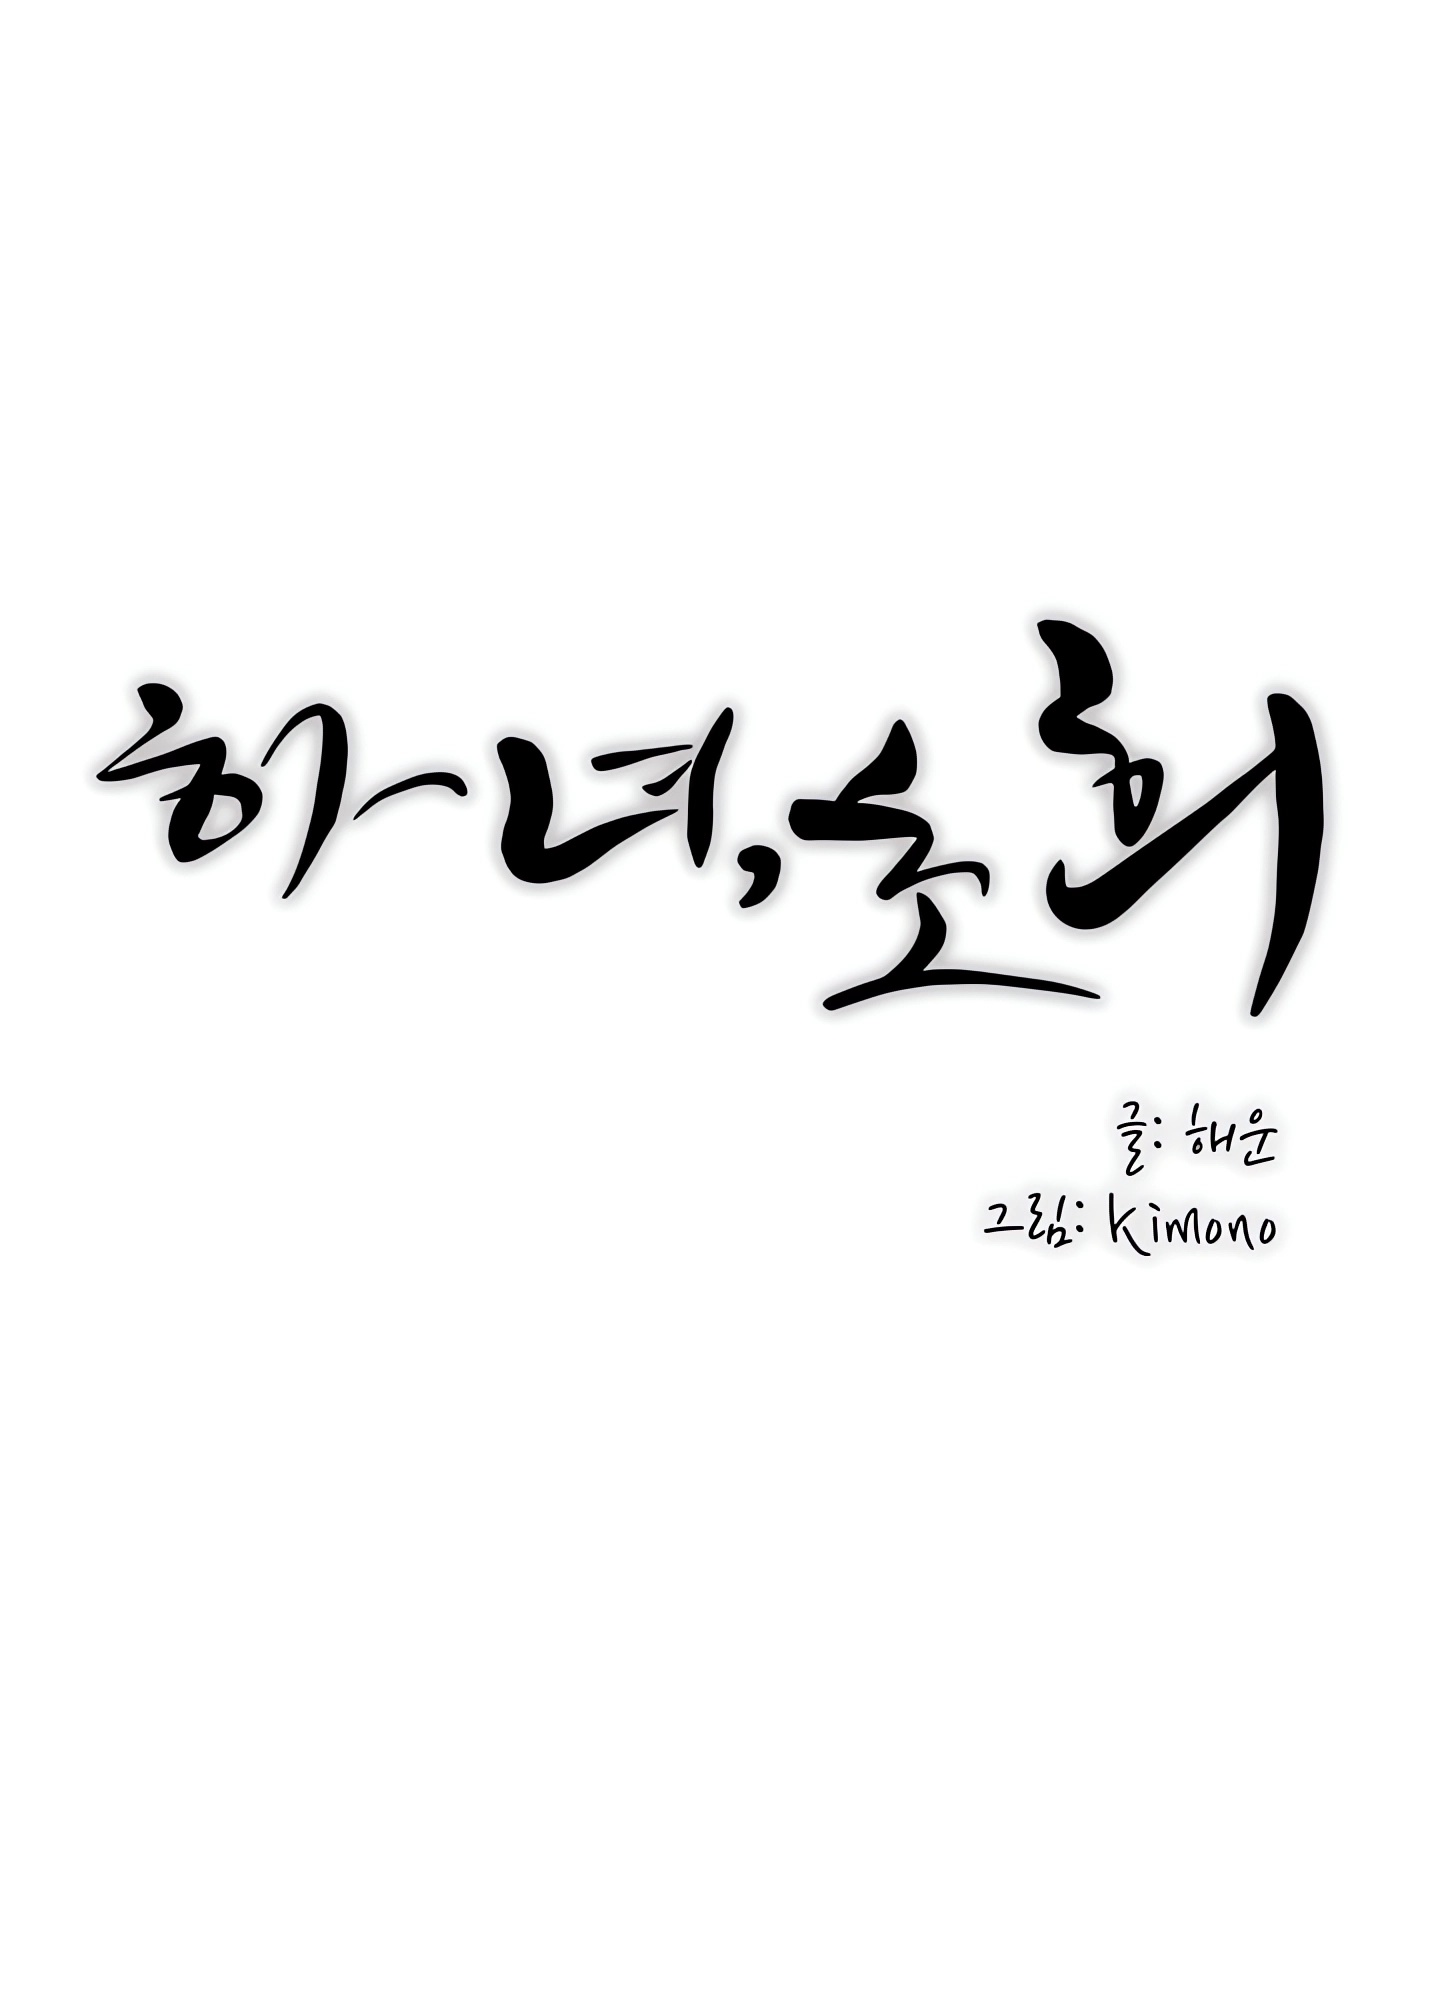 하녀, 초희
글: 해운
그림: kimono